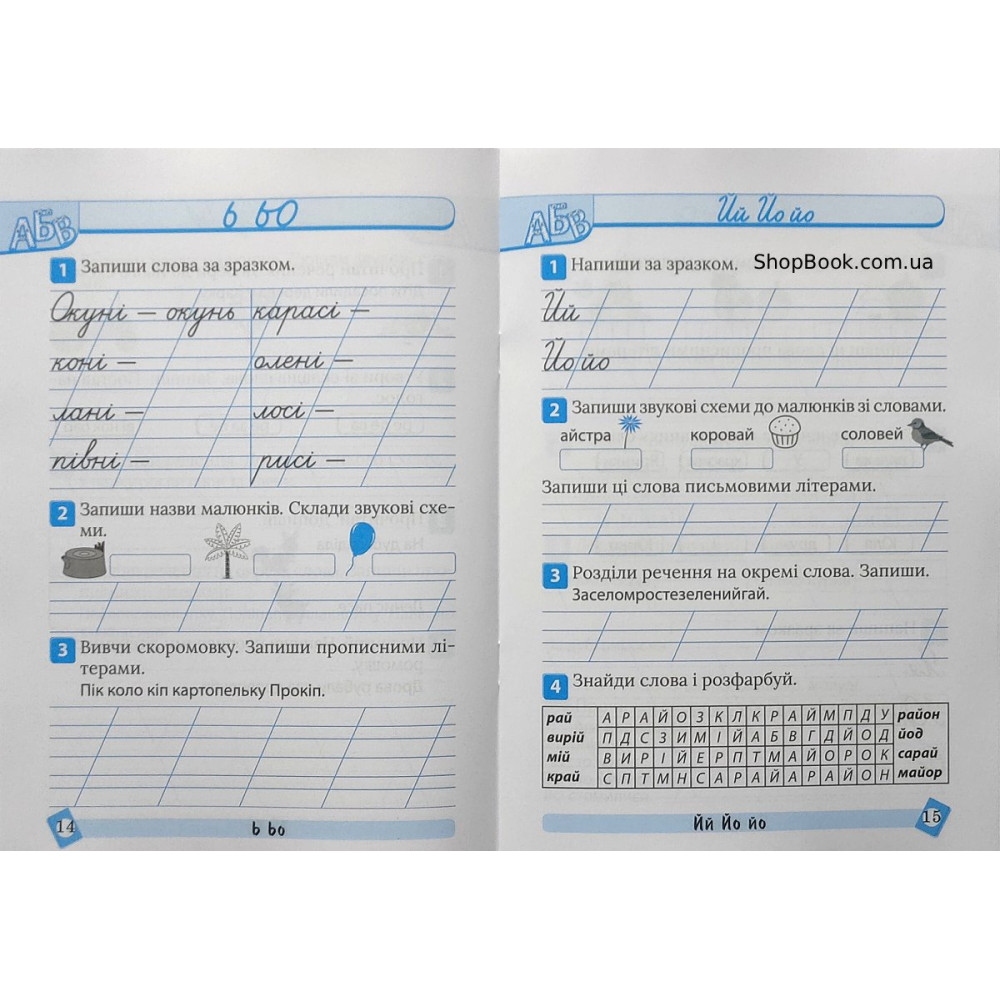 АБВ
ь ьо
1 Запиши слова за зразком.
Окуні — окунь карасі —
коні — олені —
лані — лосі —
півні — рисі —
2 Запиши назви малюнків. Склади звукові схе-
ми.
3 Вивчи скоромовку. Запиши прописними лі-
терами.
Пік коло кіп картопельку Прокіп.
14
ь ьо
АБВ
Йй Йо йо
1 Напиши за зразком.
ShopBook.com.ua
Йй
Йо йо
2 Запиши звукові схеми до малюнків зі словами.
айстра коровай соловей
Запиши ці слова письмовими літерами.
3 Розділи речення на окремі слова. Запиши.
Заселомростезеленийгай.
4 Знайди слова і розфарбуй.
рай А Р А Й О З К Л К Р А Й М П Д У район
вирій П Д С З И М І Й А Б В Г Д Й О Д йод
мій В И Р І Й Е Р П Т М А Й О Р О К сарай
край С П Т М Н С А Р А Й А Р А Й О Н майор
Йй Йо йо
15